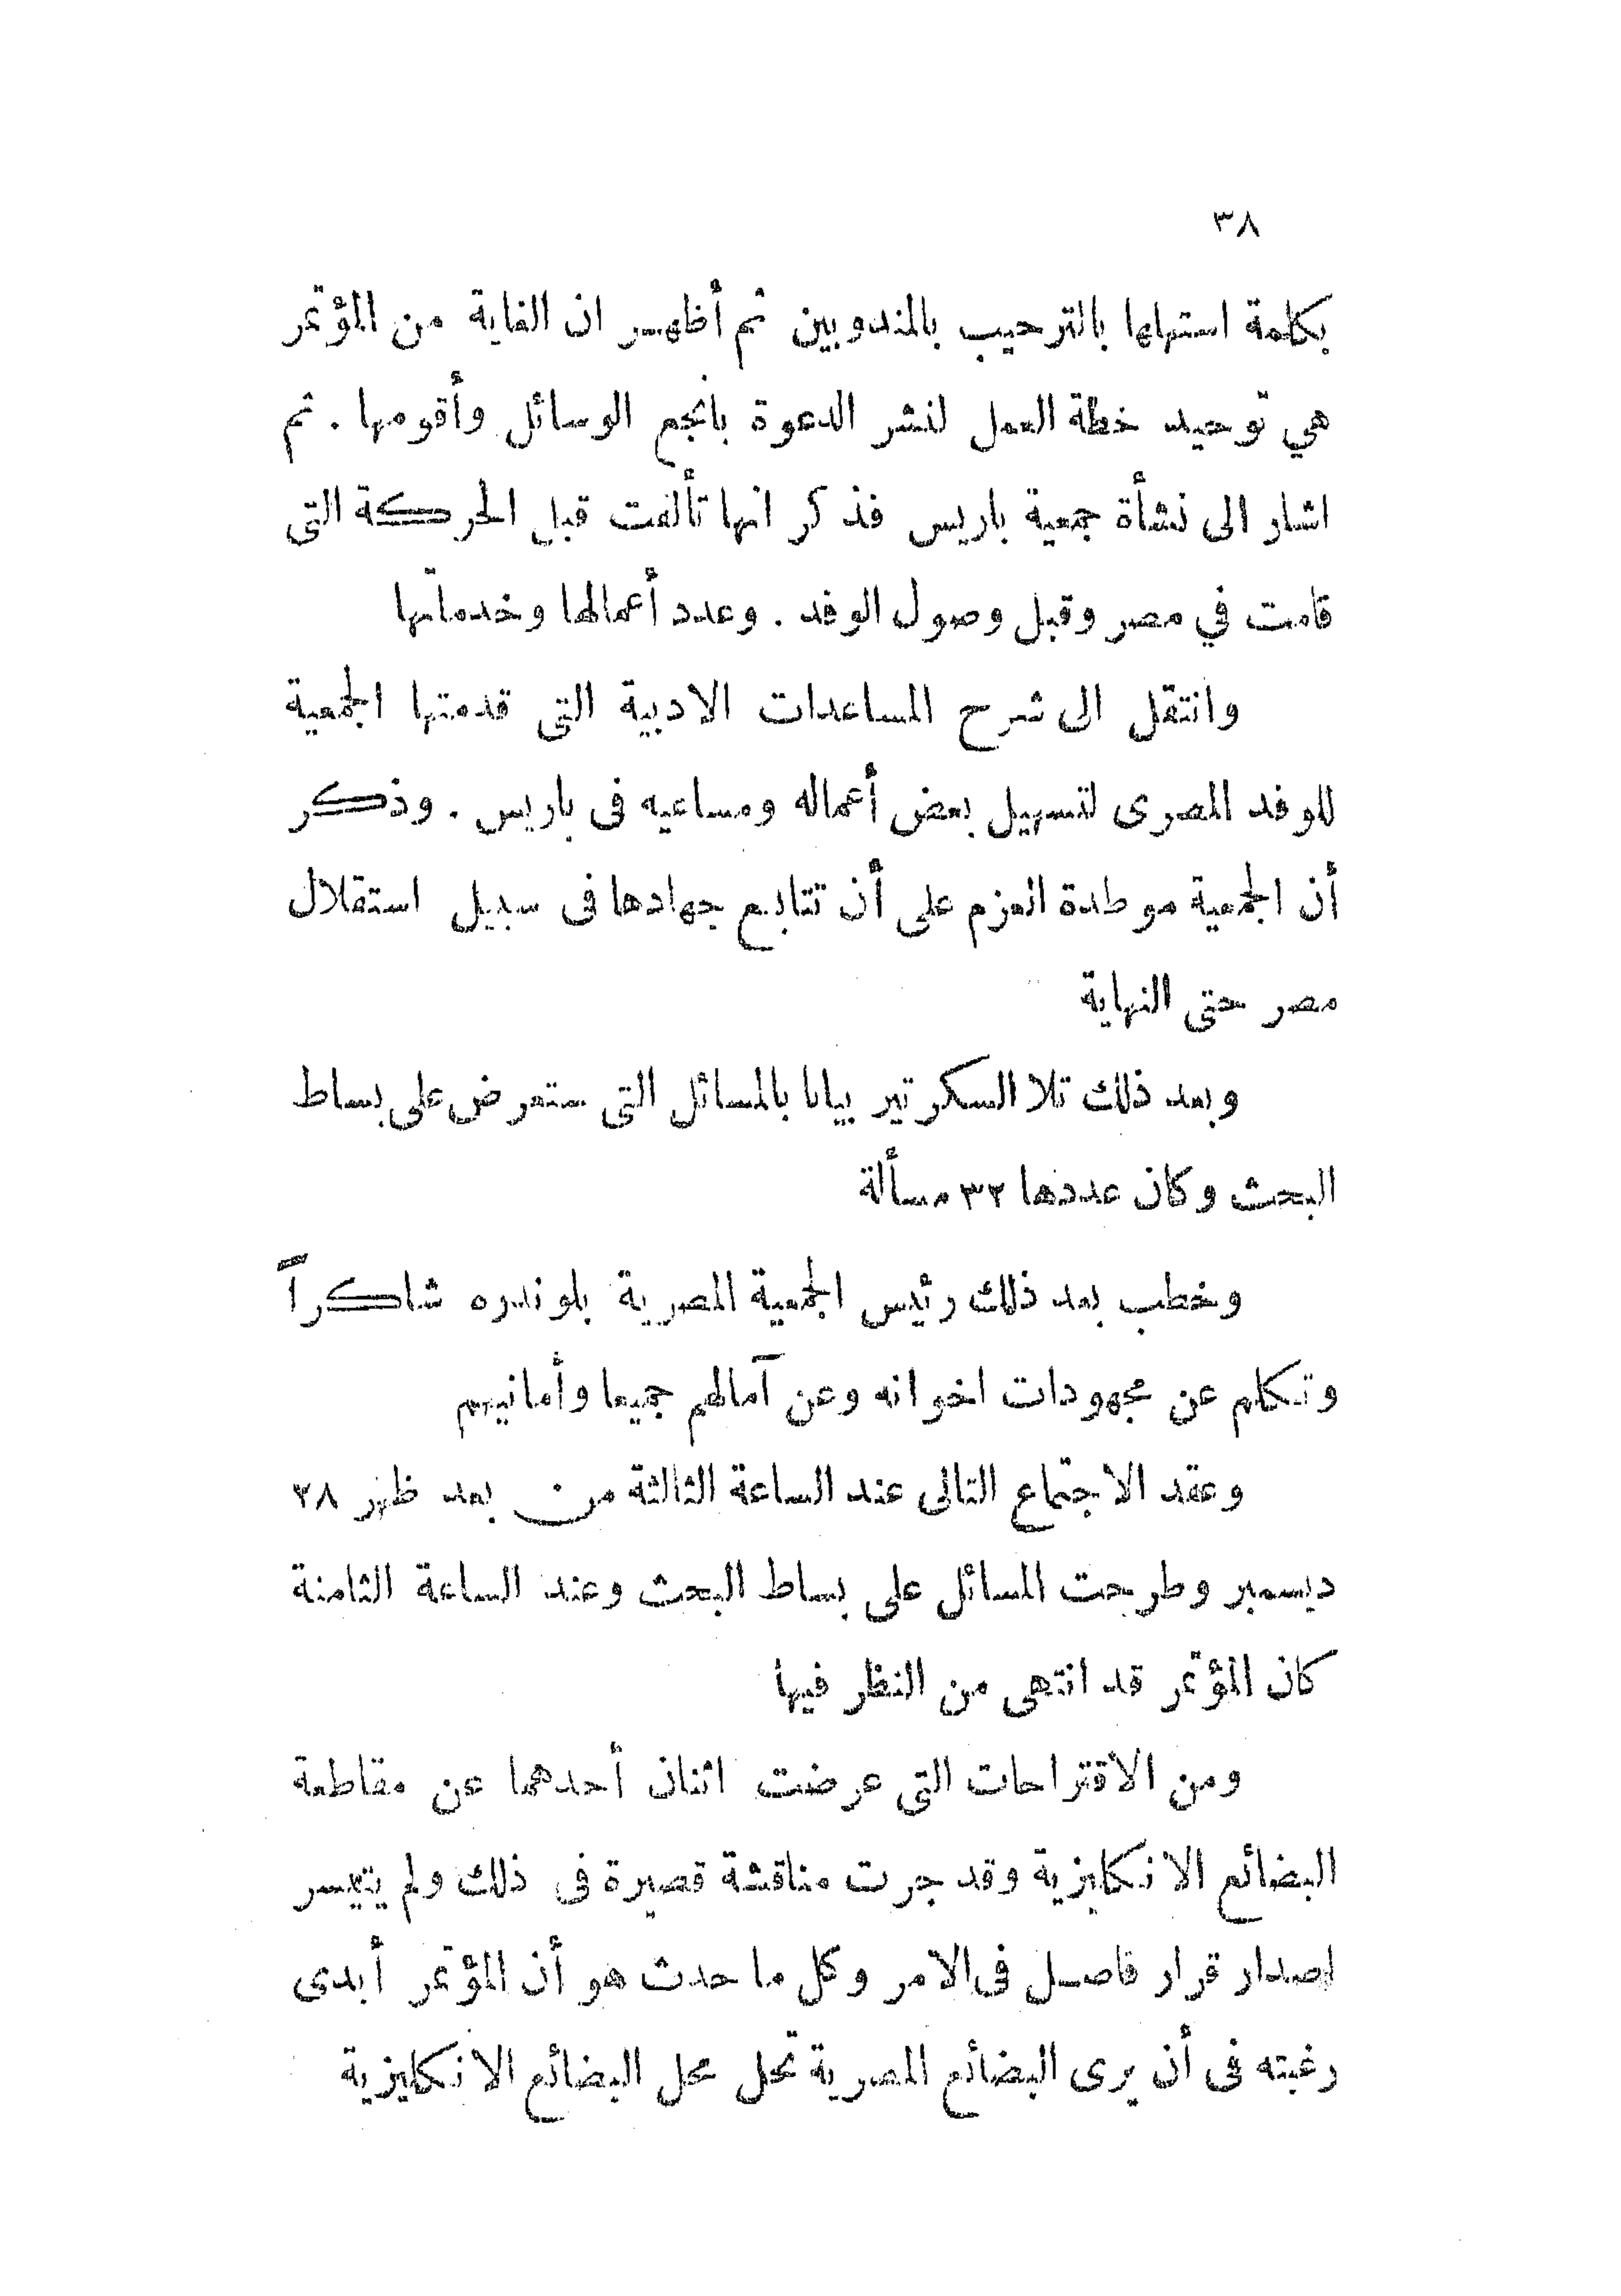 ٣٨
بكلمة استهلها بالترحيب بالمندوبين ثم أظهر ان الغاية من المؤتمر
هي توحيد خطة العمل لنشر الدعوة بانجع الوسائل وأقومها . ثم
اشار الى نشأة جمعية باريس فذكر انها تألفت قبل الحركة التى
قامت في مصر وقبل وصول الوفد . وعدد أعمالها وخدماتها
وانتقل الى شرح المساعدات الادبية التى قدمتها الجمعية
للوفد المصرى لتسهيل بعض أعماله ومساعيه فى باريس . وذكر
أن الجمعية موطدة العزم على أن تتابع جهادها فى سبيل استقلال
مصر حتى النهاية
وبعد ذلك تلا السكرتير بيانا بالمسائل التى ستعرض على بساط
البحث وكان عددها ٣٢ مسألة
وخطب بعد ذلك رئيس الجمعية المصرية بلوندره شاكراً
وتكلم عن مجهودات اخوانه وعن آمالهم جميعا وأمانيهم
وعقد الاجتماع التالى عند الساعة الثالثة من بعد ظهر ٢٨
ديسمبر وطرحت المسائل على بساط البحث وعند الساعة الثامنة
كان المؤتمر قد انتهى من النظر فيها
ومن الاقتراحات التى عرضت اثنان أحدهما عن مقاطعة
البضائع الانكليزية وقد جرت مناقشة قصيرة فى ذلك ولم يتيسر
اصدار قرار فاصل فى الامر وكل ما حدث هو أن المؤتمر أبدى
رغبته فى أن يرى البضائع المصرية تحل محل البضائع الانكليزية